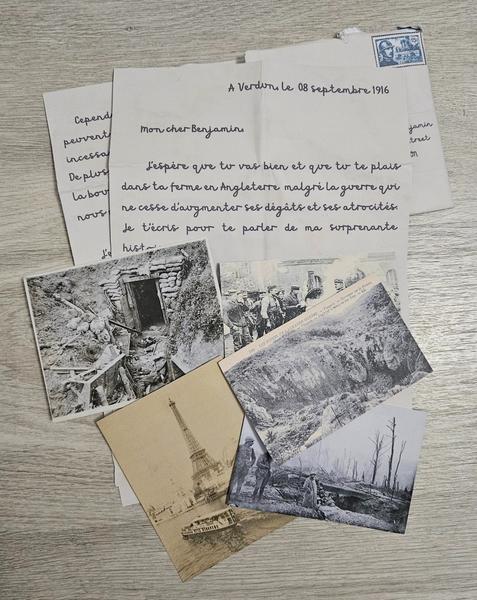 A Verdun, le 08 septembre 1916
Mon cher Benjamin,
J'espère que tu vas bien et que tu te plais
dans ta ferme en Angleterre malgré la guerre qui
ne cesse d'augmenter ses dégâts et ses atrocités.
Je t'écris pour te parler de ma surprenante
Cepend
peuvent
incessa
De plus
la bou
nous